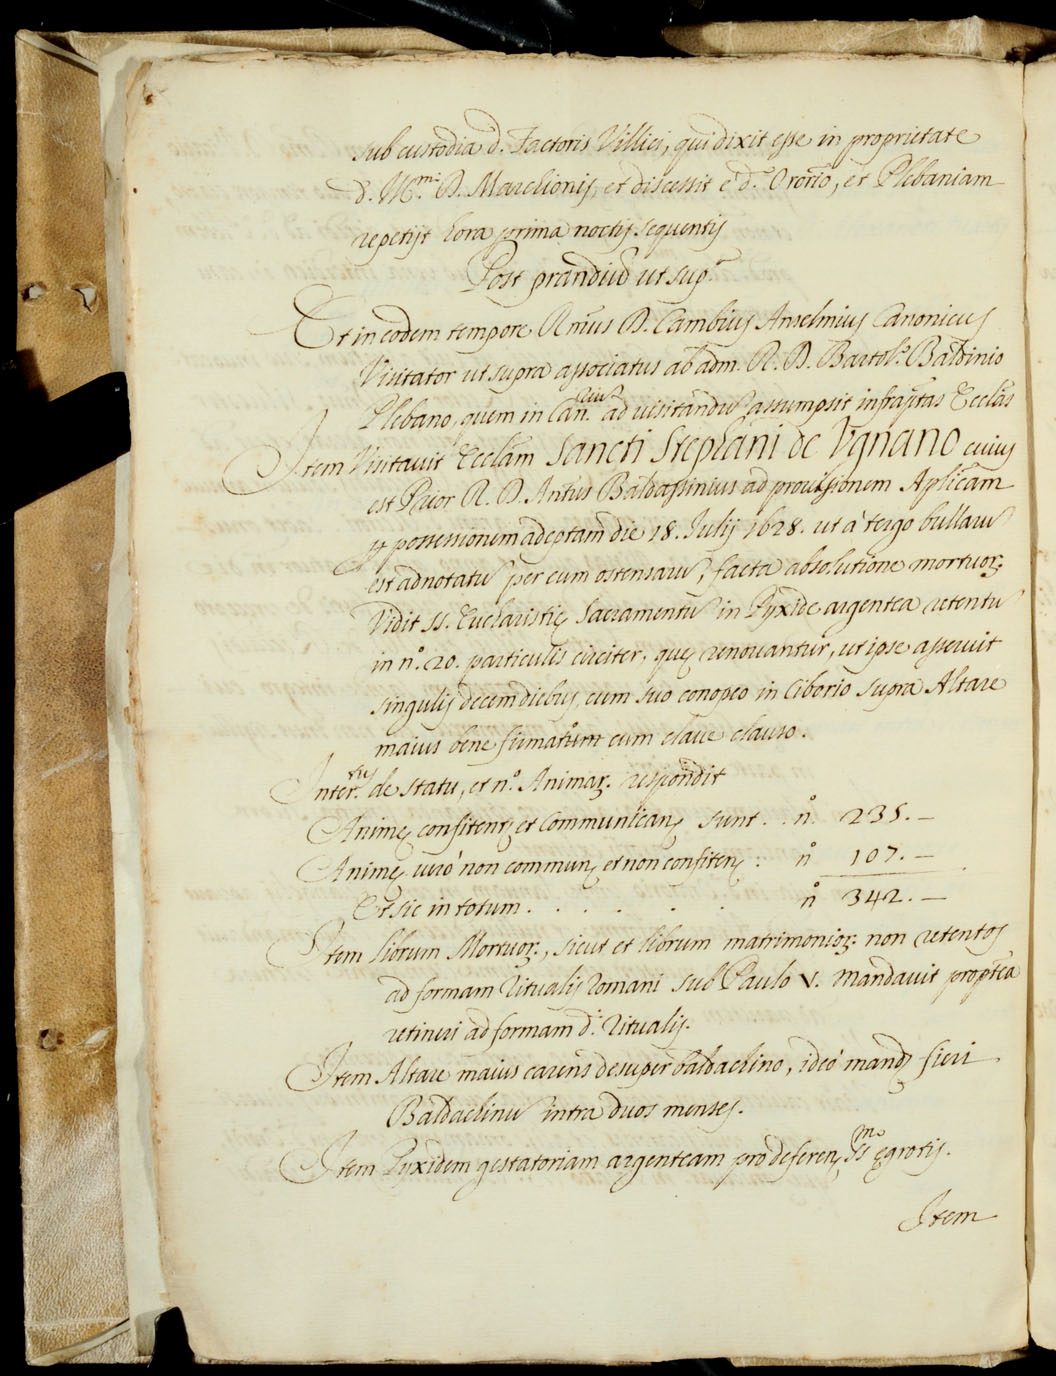 sub custodia d. Factoris Villici, qui dixit esse in proprietate
d. Ill.mi D. Marchionis, et discessit è d.o Orōrio, et Plebaniam
repetijt hora prima noctis sequentis
Post prandiū ut sup.a
Et in eodem tempore R.mus D. Cambius Anselmius Canonicus
Visitator ut supra associatus ab adm. R. D. Bartol.o Baldinio
Plebano, quem in Can.cium ad visitandū assumpsit infrāptas Ecclās
Item Visitavit Ecclām Sancti Stephani de Vignano cuius
est Prior R. D. Ant.us Baldassinius ad provisionem Aplicam
per possessionem adeptam die 18. Julij 1628. ut à tergo bullarū
est adnotatū per eum ostensarū, facta absolutione mortuor.
Vidit SS. Eucharistię Sacramentū in Pyxide argentea retentū
in n.o 20. particulis circiter, quę renovantur, ut ipse asseruit
singulis decem diebus, cum suo conopeo in Ciborio supra Altare
maius bene firmatum cum clave clauso.
Inter.tus de statu, et n.o Animar. respondit
Animę confitent. et Communican. sunt . . n.o 235. —
Animę verò non commun. et non confiten. : n.o 107. —
Et sic in totum . . . . . . n.o 342. —
Item librum Mortuor., sicut et librum matrimonior. non retentos
ad formam Ritualis Romani sub Paulo V. mandavit proptēa
retineri ad formam d.i Ritualis.
Item Altare maius carens desuper baldachino, ideò mand. fieri
Baldachinū intra duos menses.
Item Pyxidem gestatoriam argenteam pro deferen. SS.mo ęgrotis.
Item